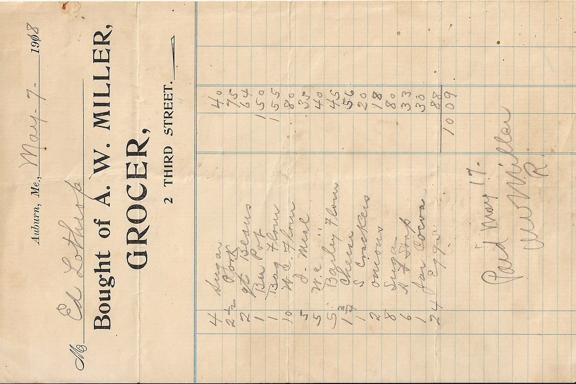 Auburn, Me., May - 7 - 1908
M Ed Lothrop
Bought of A. W. MILLER,
GROCER,
2 THIRD STREET.
4 Sugar 40
2½ Pork 75
2 qt Beans 64
1 Bu Pot 1 50
1 Bag Flour 1 55
10 W. E. Flour 80
5 J. Meal 35
5 W. E. " 40
5 Barley Flour 45
Cheese 56
1 S Crackers 20
2 onions 18
8 Sugar 80
6 33
1 jar Cocoa 30
24 Eggs 88
10 09
Paid May 17.
AW Miller
R.